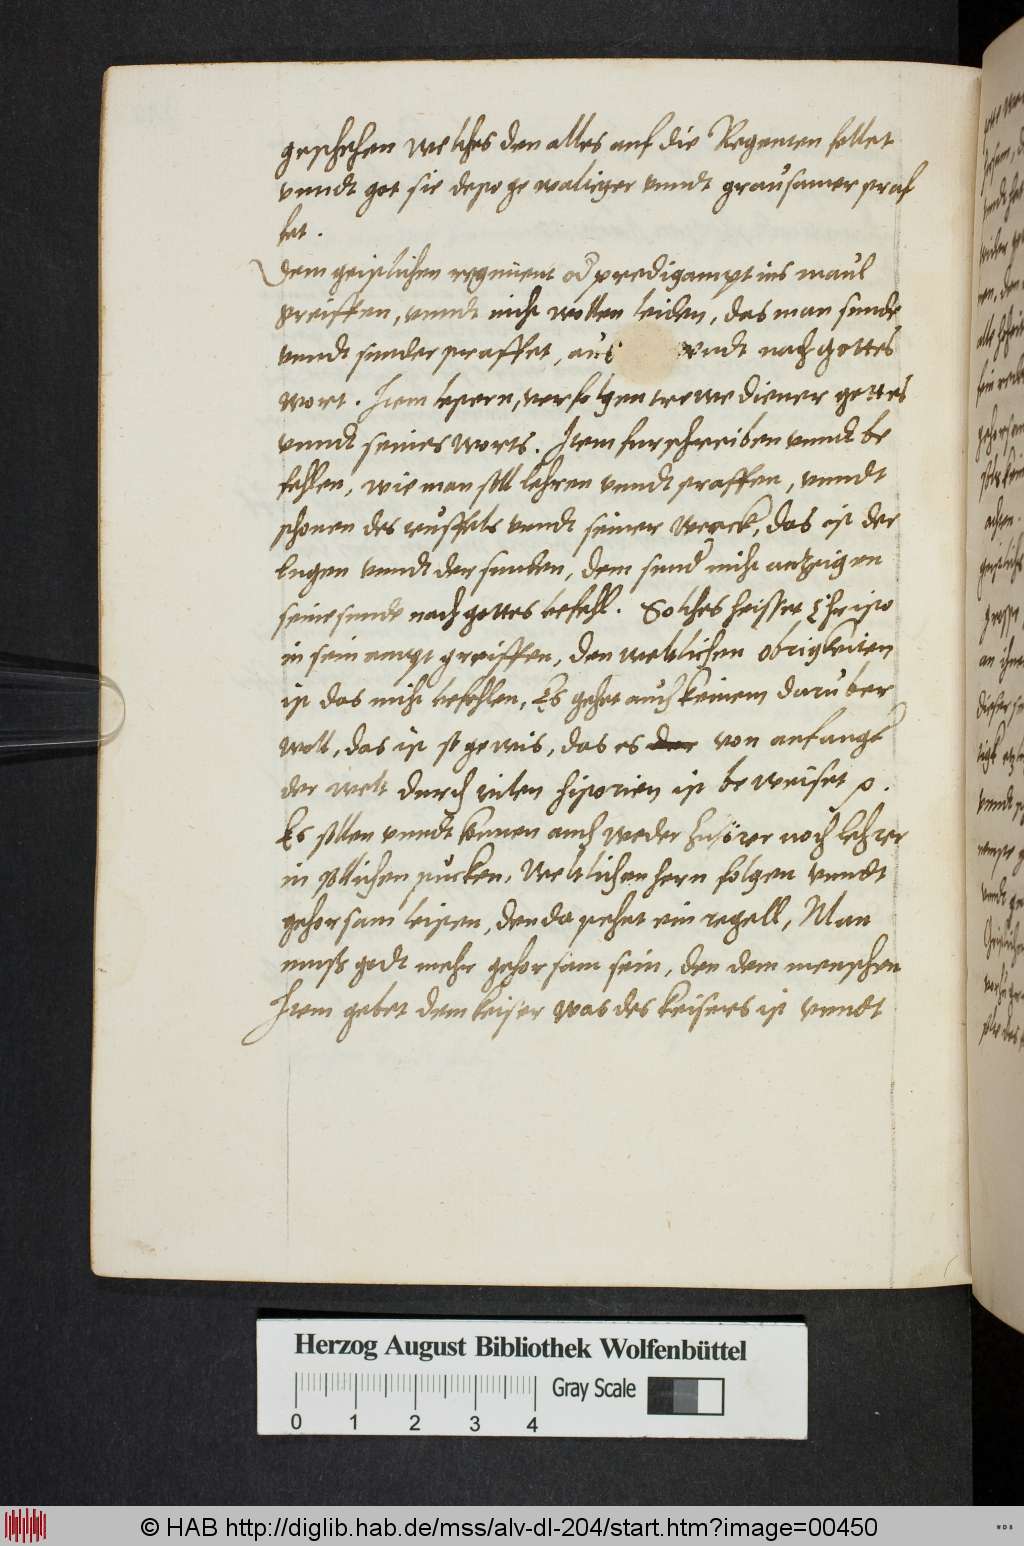 geschehen welches den alles auf die Regenten fellet
vnndt got sie desto gewaltiger vnndt grausamer straf
fet.
Dem geistlichen regiment od predigampt ins maul
greiffen, vnndt nicht wollen leiden, das man sunde
vnndt sunder straffet, aus vndt nach Gottes
wort. Item lestern, verfolgen trewe diener gottes
vnndt seines worts. Item furschreiben vnndt be
fehlen, wie man soll lehren vnndt straffen, vnndt
schonen des teuffels vnndt seiner werck, das ist der
lugen vnndt der sunden, dem sund nicht antzeigen
seine sunde nach gottes befehl. Solches heisset Christo
in sein ampt greiffen, den weltlichen obrigkeiten
ist das nicht befohlen, Es gehet auch keinem daruber
woll, das ist so gewis, das es von anfangk
der welt durch vilen historien ist beweiset
Es sollen vnndt konnen auch weder zuhörer noch lehrer
in sollichen stucken, Weltlichen hern folgen vnndt
gehorsam leisten, den da stehet ein regell, Man
muss godt mehr gehorsam sein, den dem menschen
Item gebet dem keiser was des keisers ist vnndt
Herzog August Bibliothek Wolfenbüttel
Gray Scale
0 1 2 3 4
© HAB http://diglib.hab.de/mss/alv-dl-204/start.htm?image=00450